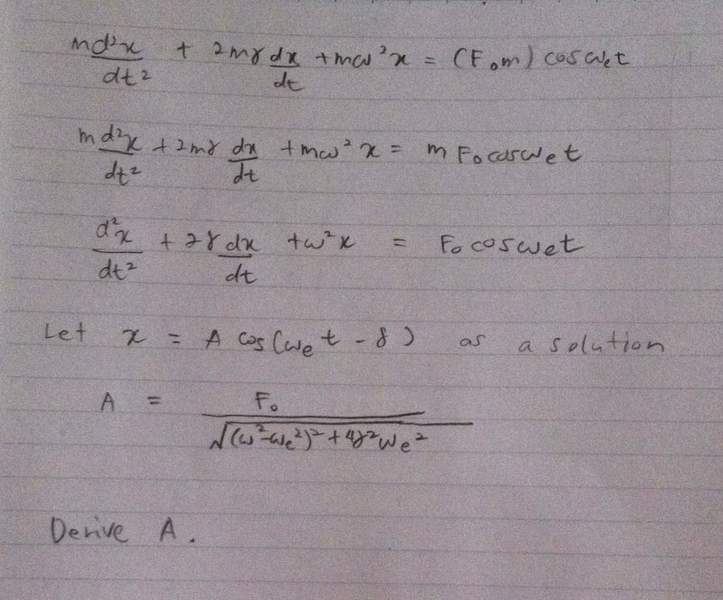 md²x/dt² + 2mγ dx/dt + mω²x = (F₀m) cosωₑt
md²x/dt² + 2mγ dx/dt + mω²x = mF₀cosωₑt
d²x/dt² + 2γ dx/dt + ω²x = F₀cosωₑt
Let x = A cos(ωₑt - δ) as a solution
A = F₀/√(ω²-ωₑ²)² + 4γ²ωₑ²
Derive A.